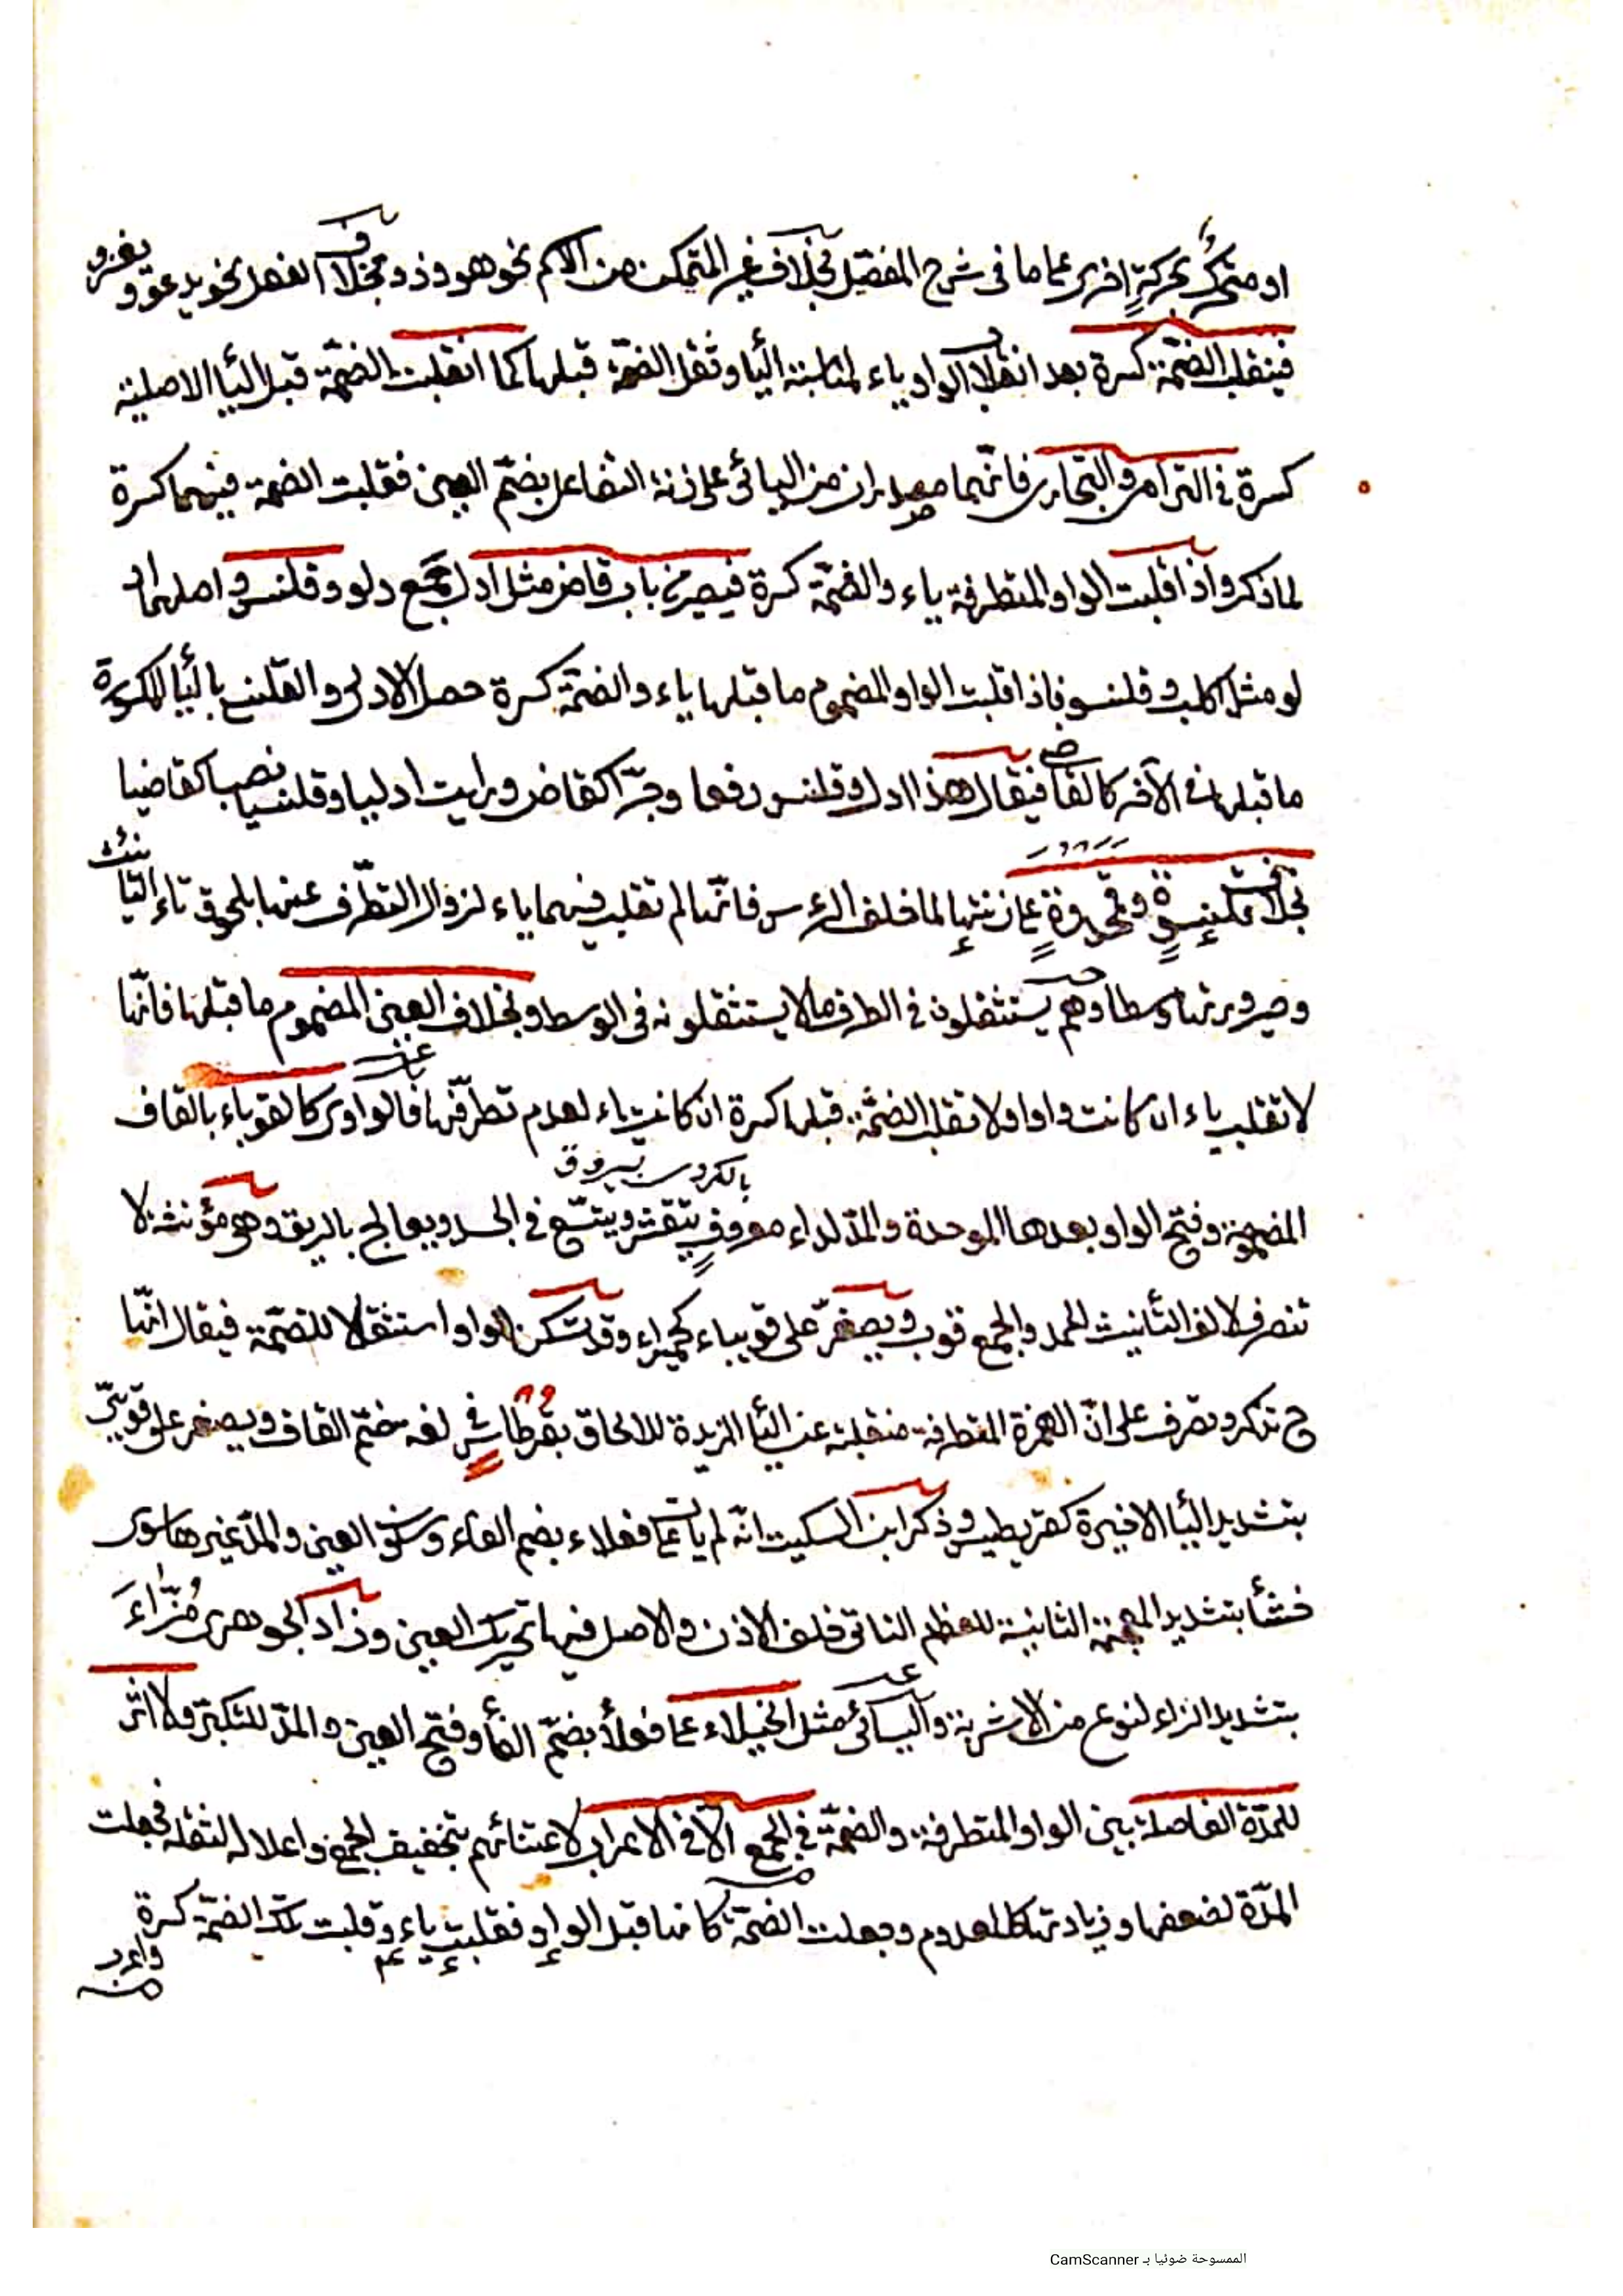 او متحرك بحركةٍ اخرى على ما فى شرح المفصّل بخلاف غير المتمكن من الاسم نحو هو وذو وبخلاف الفعل نحو يدعو ويغزو
فينقلب الضمّة كسرة بعد انقلاب الواو ياء لمناسبة اليأ وثقل الضمّة قبلها كما انقلبت الضمّة قبل اليأ الاصلية
كسرة فى الترامى والتجارى فانّهما مصدران من اليائى على زنة التفاعل بضمّ العين فقلبت الضمة فيهما كسرة
لما ذكر واذا قلبت الواو المتطرفة ياء والضمّة كسرة فيصير من باب قاض مثل ادل جمع دلو وقلنس واصلهما اد
لو مثل اكلب وقلنسو فاذا قلبت الواو المضموم ما قبلها ياء والضمّة كسرة حصل الادلى والقلنسى باليأ المكسورة
ما قبلها فى الآخر كالقاضى فيقال هذا ادل وقلنس رفعا وجرّا كقاض ورايت ادليا وقلنسيا نصبا كقاضيا
بخلاف قلنسوةٍ وقمحدوةٍ على زنتها لما خلف الرءس فانّهما لم تقلب فيهما ياء لزوال التطرّف عنها بلحوق تاء التأنيث
وصيرورتها وسطا وهم يستثقلون فى الطرف ما لا يستثقلونه فى الوسط وبخلاف العين المضموم ما قبلها فانّها
لا تقلب ياء ان كانت واوا ولا تقلب الضمّة قبلها كسرة ان كانت ياء لعدم تطرّفها فالواوى كالقوباء بالقاف
المضمومة وفتح الواو بعدها الموحدة والمدّ لداء معروفٍ يتقشر ويتسّع فى الجسد ويعالج بالريق وهو مؤنثة لا
تنصرف لالف التأنيث الممد والجمع قوب ويصغّر على قويباء كحميراء وقد تسكن الواو استثقالا للضمّة فيقال انّها
ح تذكر وتصرف على انّ الهمزة المتطرفة منقلبة عن اليأ المزيدة للالحاق بقرطاس فى لغة ضمّ القاف ويصغر على قويبىّ
بتشديد اليأ الاخيرة كقريطيس وذكر ابن السكيت انّه لم يات على فعلاء بضم الفاء وسكون العين والمدّ غيرها سوى
خشأ بتشديد المعجمة الثانية للعظم الناتى خلف الاذن والاصل فيها تحريك العين وزاد الجوهرى مُزّاءَ
بتشديد الزاء لنوع من الاشربة واليائى مثل الخيلاء على فعلأ بضمّ الفأ وفتح العين والمدّ للتكبّر ولا اثر
للمدّة الفاصلة بين الواو المتطرفة والضمّة فى الجمع الّا فى الاعراب لاعتنائهم بتخفيف الجمع واعلاله لثقله فجعلت
المدّة لضعفها وزيادتها كالمعدوم وجعلت الضمّة كانها قبل الواو فقلبت ياء وقلبت تلك الضمّة كسرة
الممسوحة ضوئيا بـ CamScanner